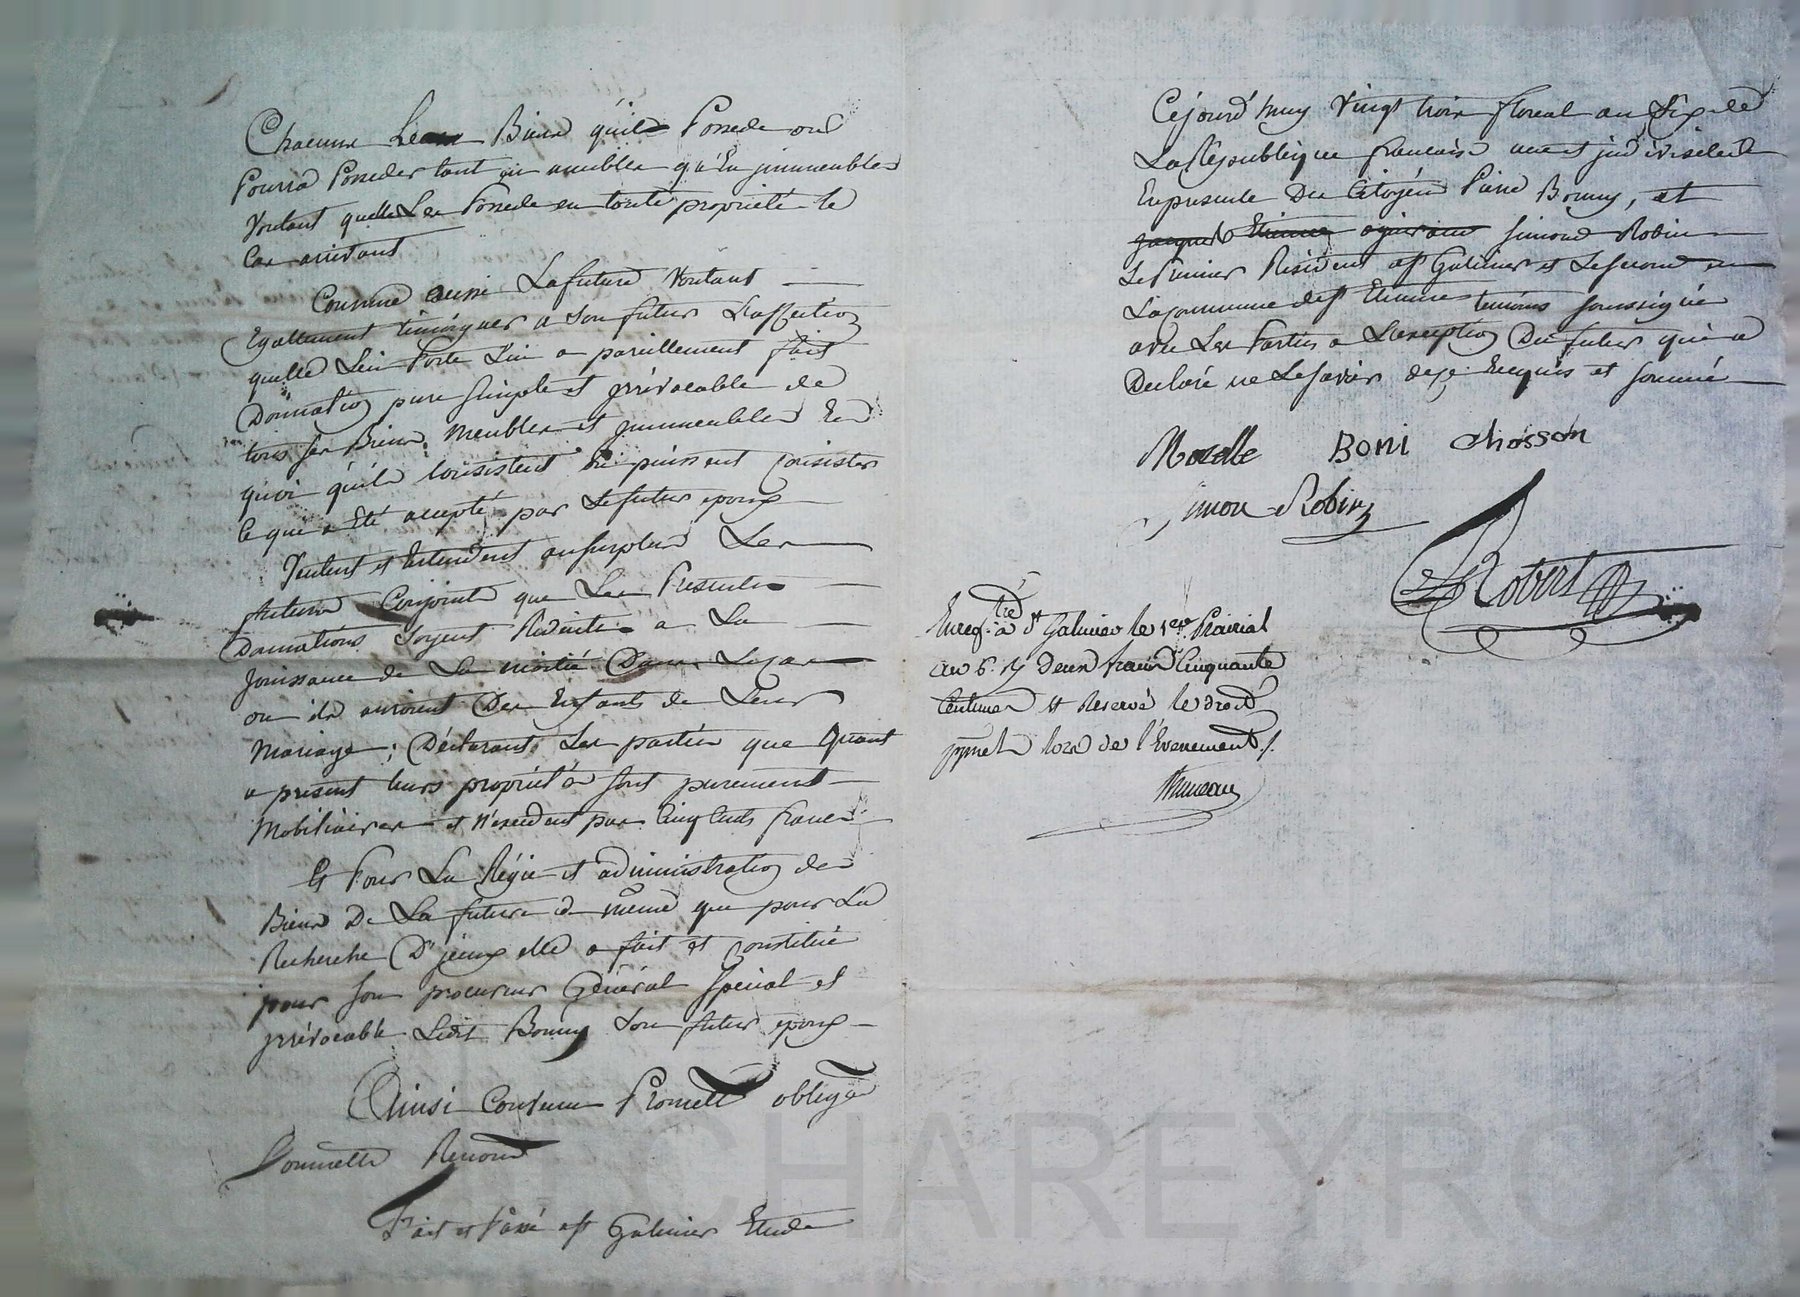 Chacune Leurs Biens qu'ils Possede ou
Pourra Posseder tant en meubles qu'En jmmeubles
Voulant quelle Les Possede en toute propriété le
Cas arrivant
Comme aussi La future Voulant
Egallement temoigner a Son futur L'affection
quelle Lui Porte Lui a pareillement fait
Donnation pure Simple et jrrévocable de
tous ses Biens Meubles et jmmeubles En
quoi qu'ils Consistent ou puissent Consister
Ce qui a Eté accepté par Le futur epoux
Veulent et Entendent au surplus Les
futurs Conjoints que Les Presentes
Donnations Soyent Reduites a La
Jouissance de La moitié Dans Le cas
ou ils auroient Des Enfants de Leur
Mariage; Déclarant Les parties que Quant
a présent leurs propriétés sont purement
Mobiliaires et n'excedent pas Cinq Cents francs
Et Pour La Régie et administration des
Biens De La future de même que pour La
Recherche D'jceux elle a fait et Constitué
pour son procureur Général Spécial et
jrrévocable Ledit Bonny Son futur epoux
Ainsi Convenu Promett obligea
Soumette Renonc
Fait et Passé a St Galmier Etude
Cejourd'huy Vingt trois floreal an Six de
La République francaise une et jndivisible
En presence Du Citoyen Pierre Bonny, et
Simond Robin
Le Premier Résident a St Galmier et Le second en
La commune de St Etienne temoins soussignés
avec Les Parties a L'exception Du futur qui a
Declaré ne Le savoir de ce Enquis et sommé
Morelle BONI Chosson
simon Robin
Robert
Enregtré à St Galmier le 1er Prairial
an 6. Deux francs Cinquante
Centimes et Reservé le droit
lors de l'Evenement /.
CHAREYRON